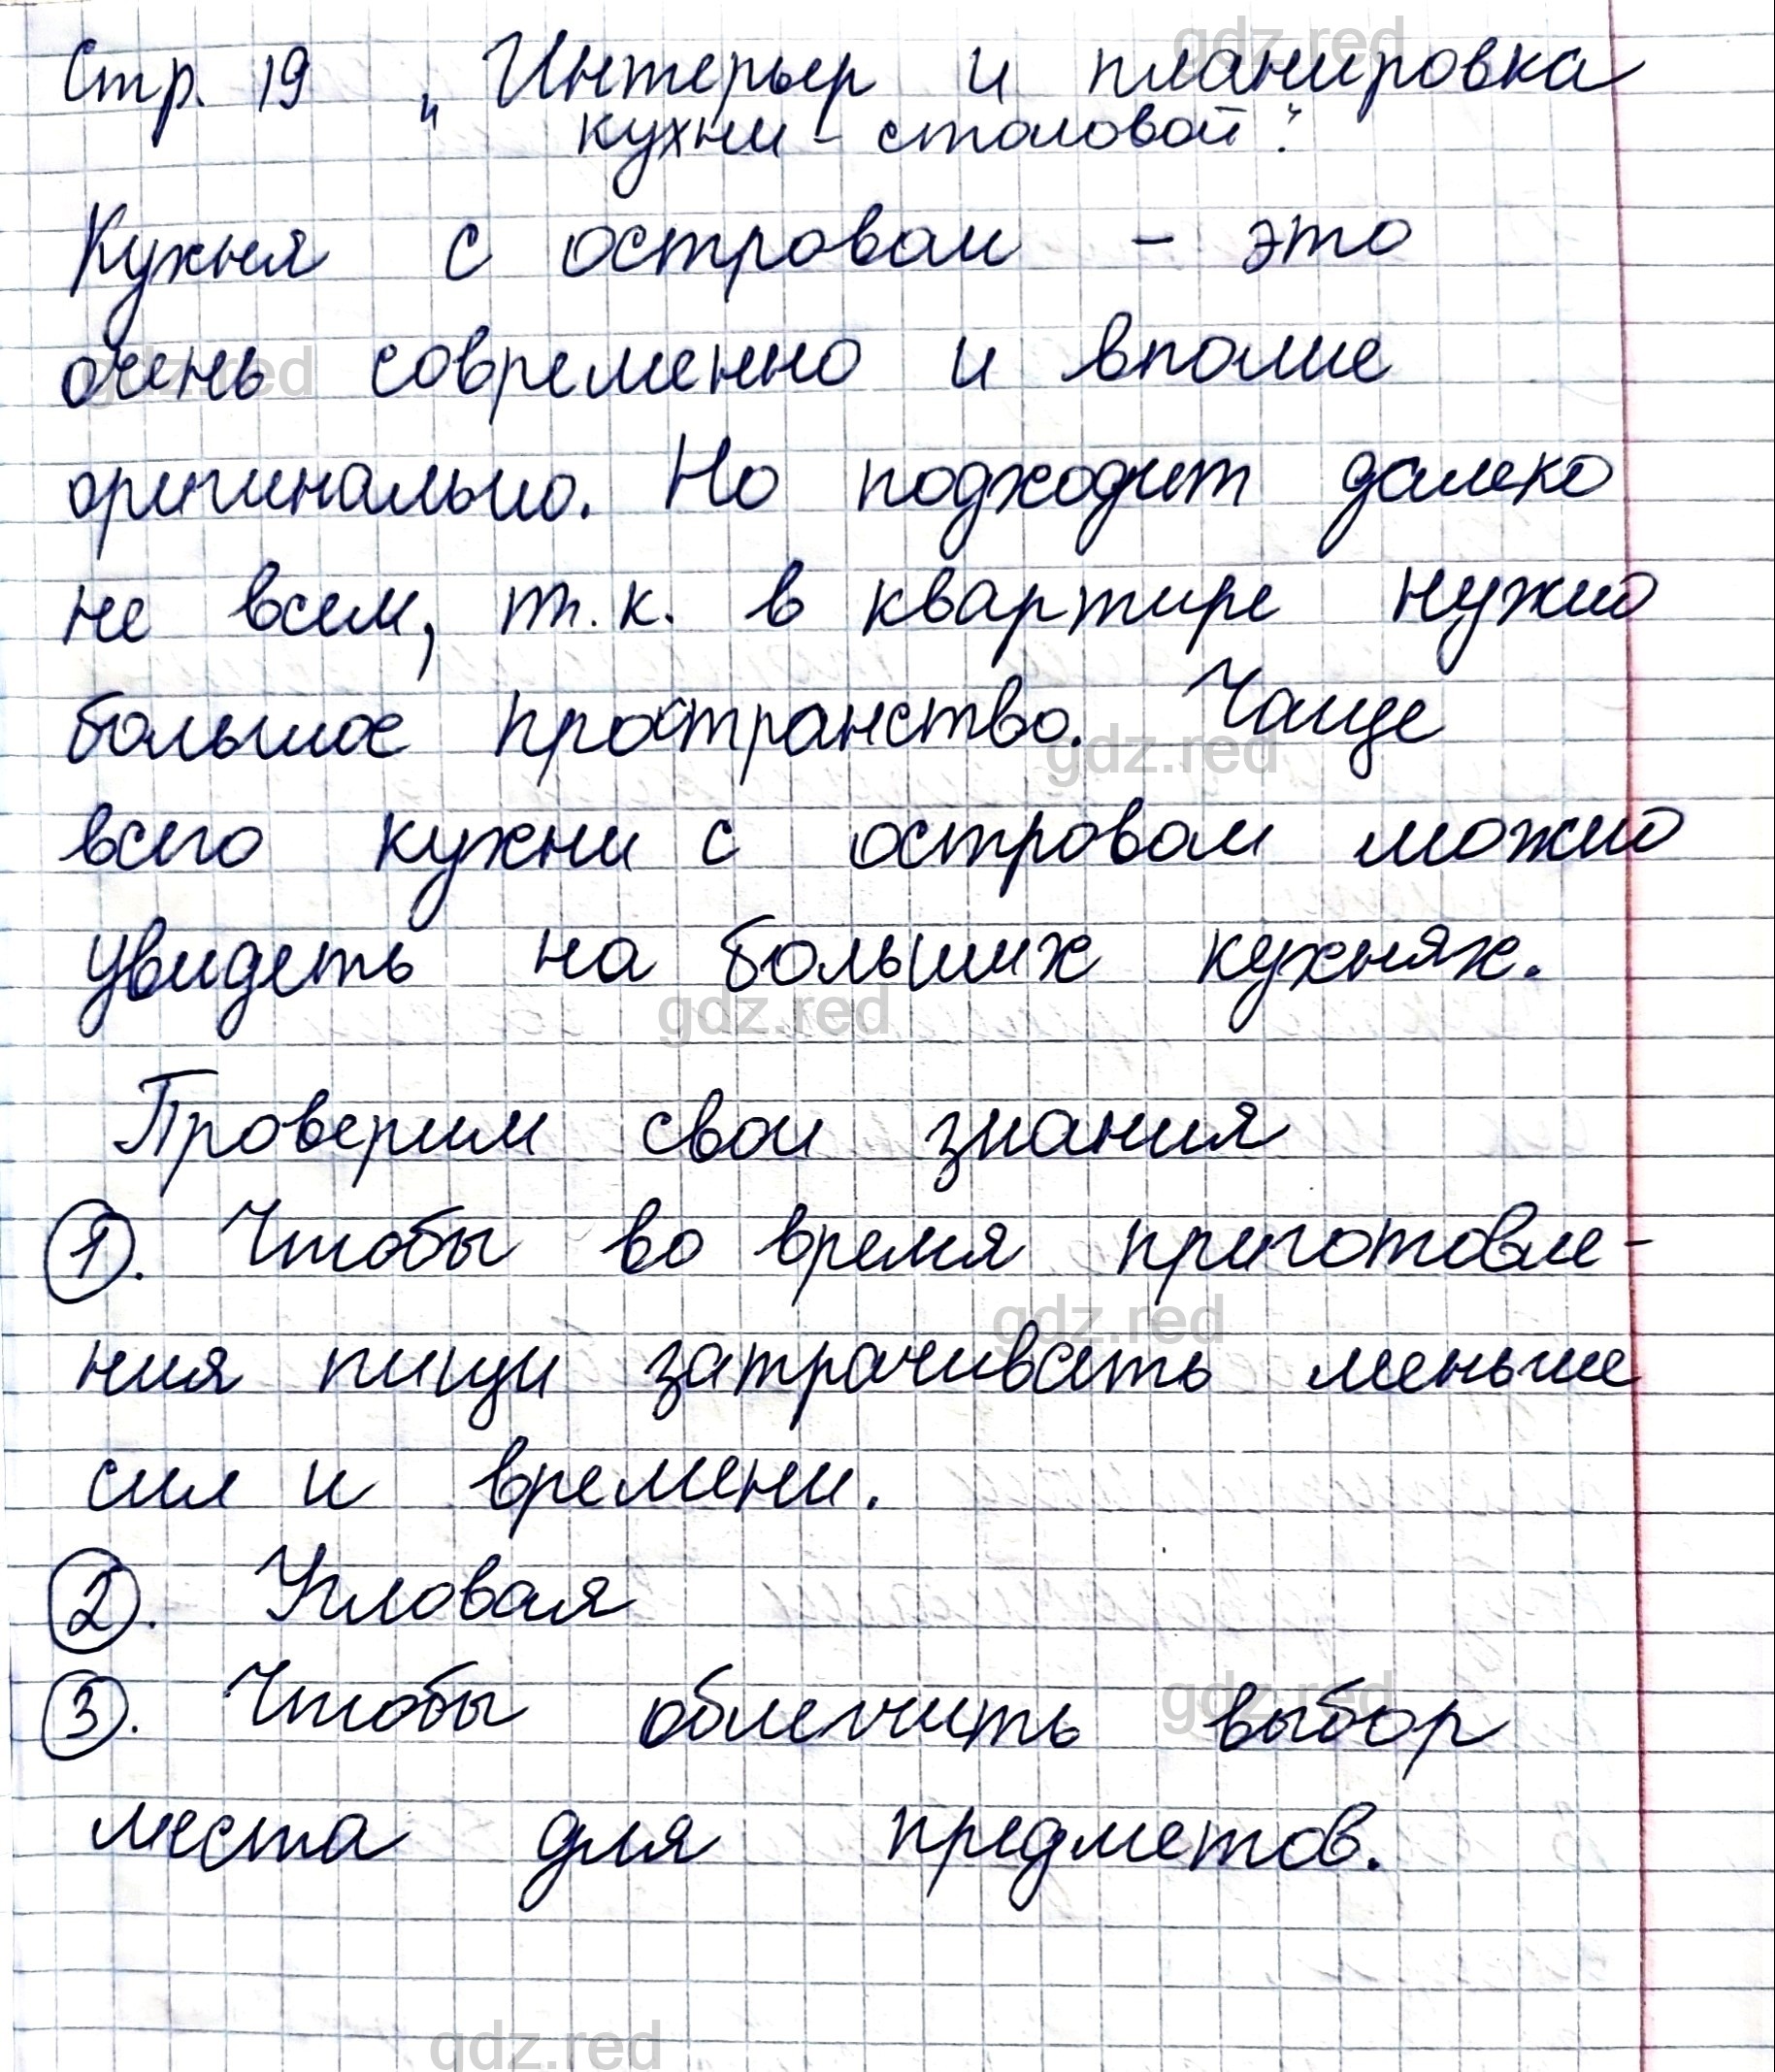 Стр. 19 „Интерьер и планировка
кухни - столовой".
Кухня с островом - это
очень современно и вполне
оригинально. Но подходит далеко
не всем, т.к. в квартире нужно
большое пространство. Чаще
всего кухни с островом можно
увидеть на больших кухнях.
Проверим свои знания
1. Чтобы во время приготовле-
ния пищи затрачивать меньше
сил и времени.
2. Угловая
3. Чтобы облегчить выбор
места для предметов.
gdz.red
gdz.red
gdz.red
gdz.red
gdz.red
gdz.red
gdz.red